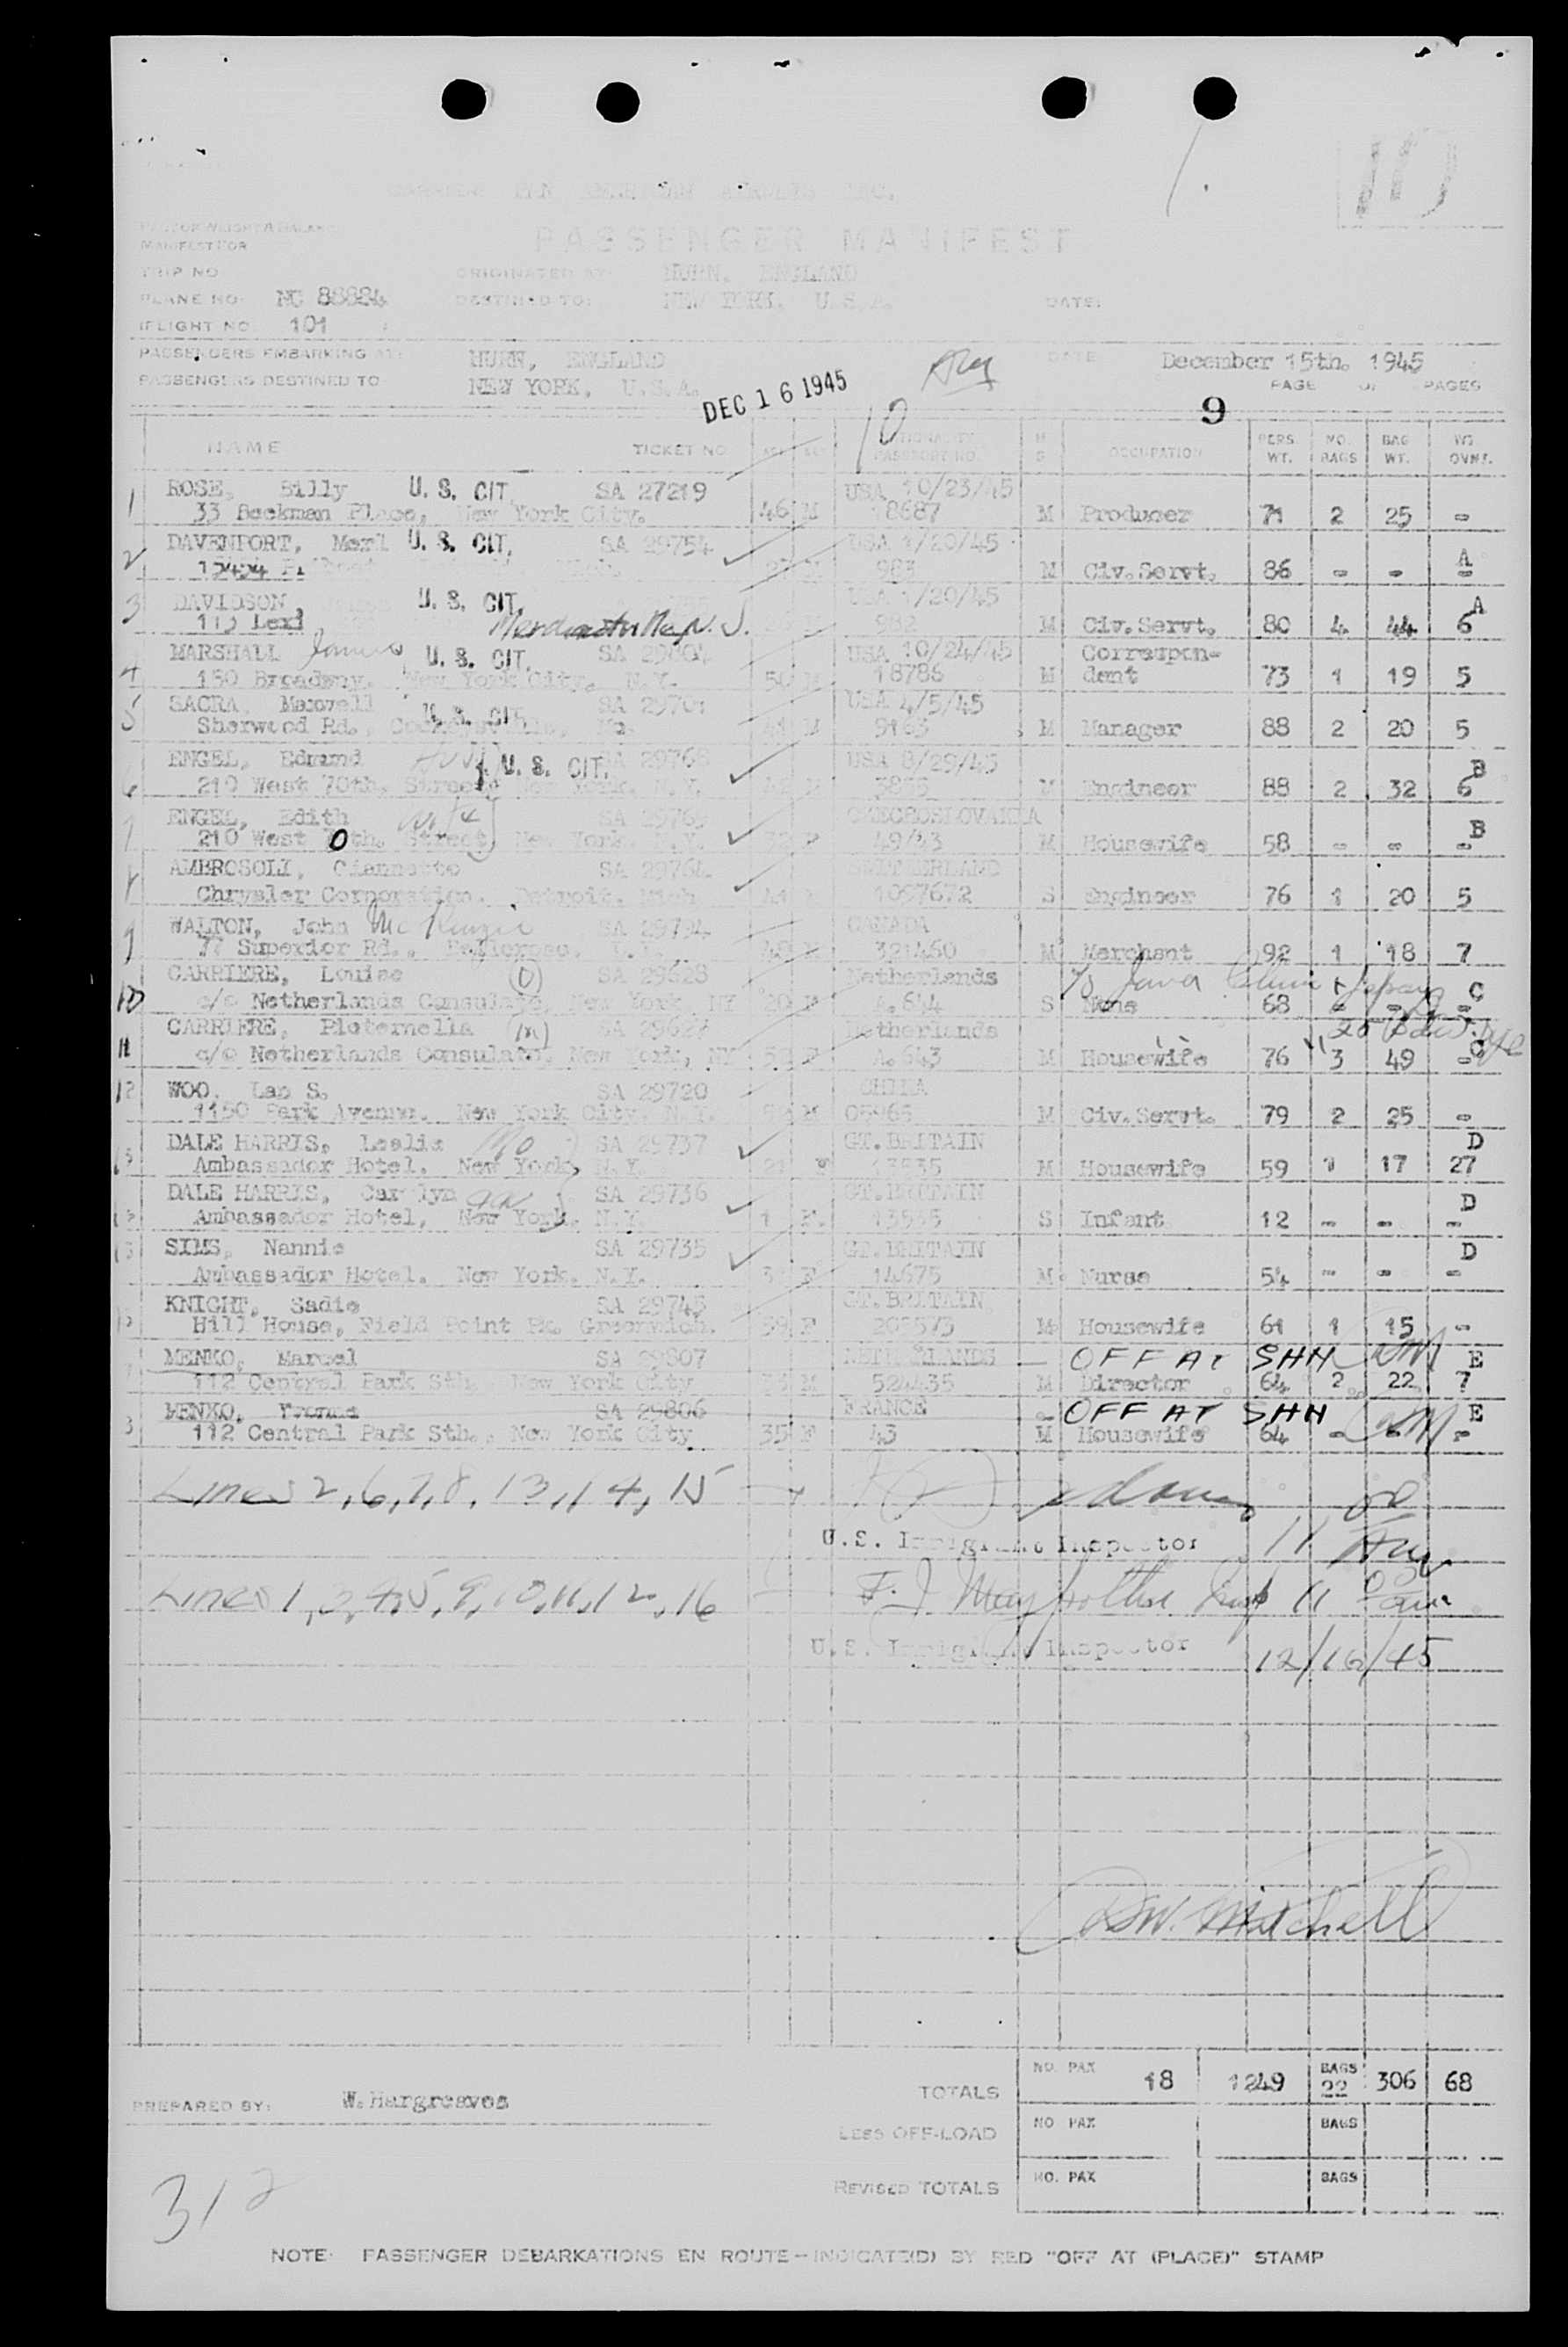 PASSENGER MANIFEST
MANIFEST FOR
TRIP NO
ORIGINATED AT: HURN, ENGLAND
PLANE NO. NC 88884
DESTINED TO: NEW YORK, U.S.A. DATE:
FLIGHT NO. 101
PASSENGERS EMBARKING AT: HURN, ENGLAND DATE December 15th. 1945
PASSENGERS DESTINED TO NEW YORK, U.S.A. PAGE OF PAGES
DEC 16 1945
10 9
NAME TICKET NO AGE SEX PASSPORT NO. M S OCCUPATION PERS. WT. NO. BAGS BAG WT. WT OVWT.
ROSE, Billy U. S. CIT. SA 27219 USA 10/23/45
1 33 Beekman Place, New York City. 46 M 18687 M Producer 71 2 25 -
DAVENPORT, Merl U. S. CIT. SA 29754 USA 1/20/45 A
2 983 M Civ.Servt. 86 - - -
DAVIDSON, U. S. CIT. USA 1/20/45 A
3 115 N.J. 982 M Civ.Servt. 80 4 44 6
MARSHALL James U. S. CIT. SA USA 10/24/45 Correspon-
4 150 Broadway. New York City. N.Y. 50 M 18786 M dent 73 1 19 5
SACRA, Maxwell U. S. CIT SA 29701 USA 4/5/45
5 Sherwood Rd., Cockeysville, Md. 41 M 9163 M Manager 88 2 20 5
ENGEL, Edmund U. S. CIT. SA 29765 USA 8/29/45 B
6 210 West 70th. Street, New York. N.Y. M M Engineer 88 2 32 6
ENGEL, Edith wife SA 29769 CZECHOSLOVAKIA B
7 210 West 0th. Street, New York. N.Y. F 49/43 M Housewife 58 - - -
AMBROSOLI, Giannetto SA 29764 SWITZERLAND
Chrysler Corporation. Detroit. Mich 41 M 1087672 S Engineer 76 1 20 5
WALTON, John McKenzie SA 29794 CANADA
9 77 Superior Rd., 321460 M Merchant 92 1 18 7
CARRIERE, Louise (D) SA 29628 Netherlands Java China C
10 c/o Netherlands Consulate, New York, NY 20 F A.644 S None 68 - - -
CARRIERE, Pieternella (M) Netherlands
11 c/o Netherlands Consulate. New York, NY F A.643 M Housewife 76 3 49 - C
12 WOO. Lan S. SA 29720 CHINA
1150 Park Avenue. New York City. N.Y. M M Civ.Servt. 79 2 25 -
DALE HARRIS, Leslie Mo SA 29737 GT.BRITAIN D
Ambassador Hotel. New York, N.Y. 21 13535 M Housewife 59 1 17 27
DALE HARRIS, Carolyn SA 29736 GT.BRITAIN D
Ambassador Hotel, New York. N.Y. 1 F. 13535 S Infant 12 - - -
SIMS, Nannie SA 29735 GT.BRITAIN D
Ambassador Hotel. New York. N.Y. F 14675 M Nurse 54 - - -
KNIGHT, Sadie SA 29745 GT.BRITAIN
Hill House, Field Point Pk. Greenwich. 59 F M Housewife 61 1 15 -
MENKO, Marcel SA 29807 NETHERLANDS OFF AT SHN E
112 Central Park Sth. New York City M M Director 64 2 22 7
MENKO, Yvonne SA 29806 FRANCE OFF AT SHN E
112 Central Park Sth., New York City 35 F 43 M Housewife 64 - - -
Lines 2,6,7,8,13,14,15
U.S. Immigrant Inspector 11
Lines 1,3,4,5,9,10,11,12,16 F. J. 11 00
U.S. Immigrant Inspector 12/16/45
D.W. Mitchell
TOTALS NO. PAX 18 1249 BAGS 22 306 68
PREPARED BY: W.Hargreaves
LESS OFF-LOAD NO PAX BAGS
REVISED TOTALS NO. PAX BAGS
312
NOTE: PASSENGER DEBARKATIONS EN ROUTE - INDICATE(D) BY RED "OFF AT (PLACE)" STAMP